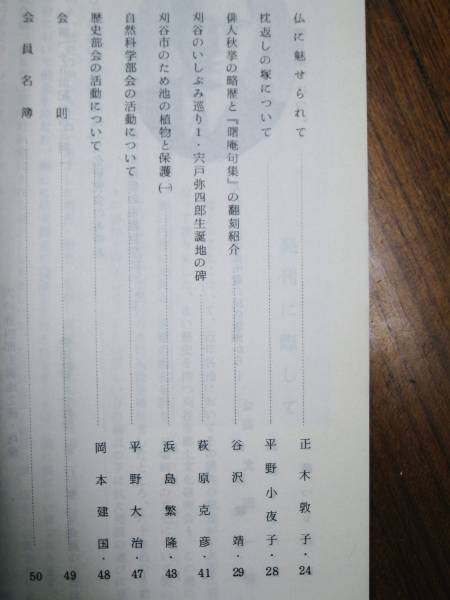 仏に魅せられて……正木敦子・24
枕返しの塚について……平野小夜子・28
俳人秋挙の略歴と『曙庵句集』の翻刻紹介……谷沢靖・29
刈谷のいしぶみ巡り1・宍戸弥四郎生誕地の碑……萩原克彦・41
刈谷市のため池の植物と保護㈠……浜島繁隆・43
自然科学部会の活動について……平野大治・47
歴史部会の活動について……岡本建国・48
会則……49
会員名簿……50